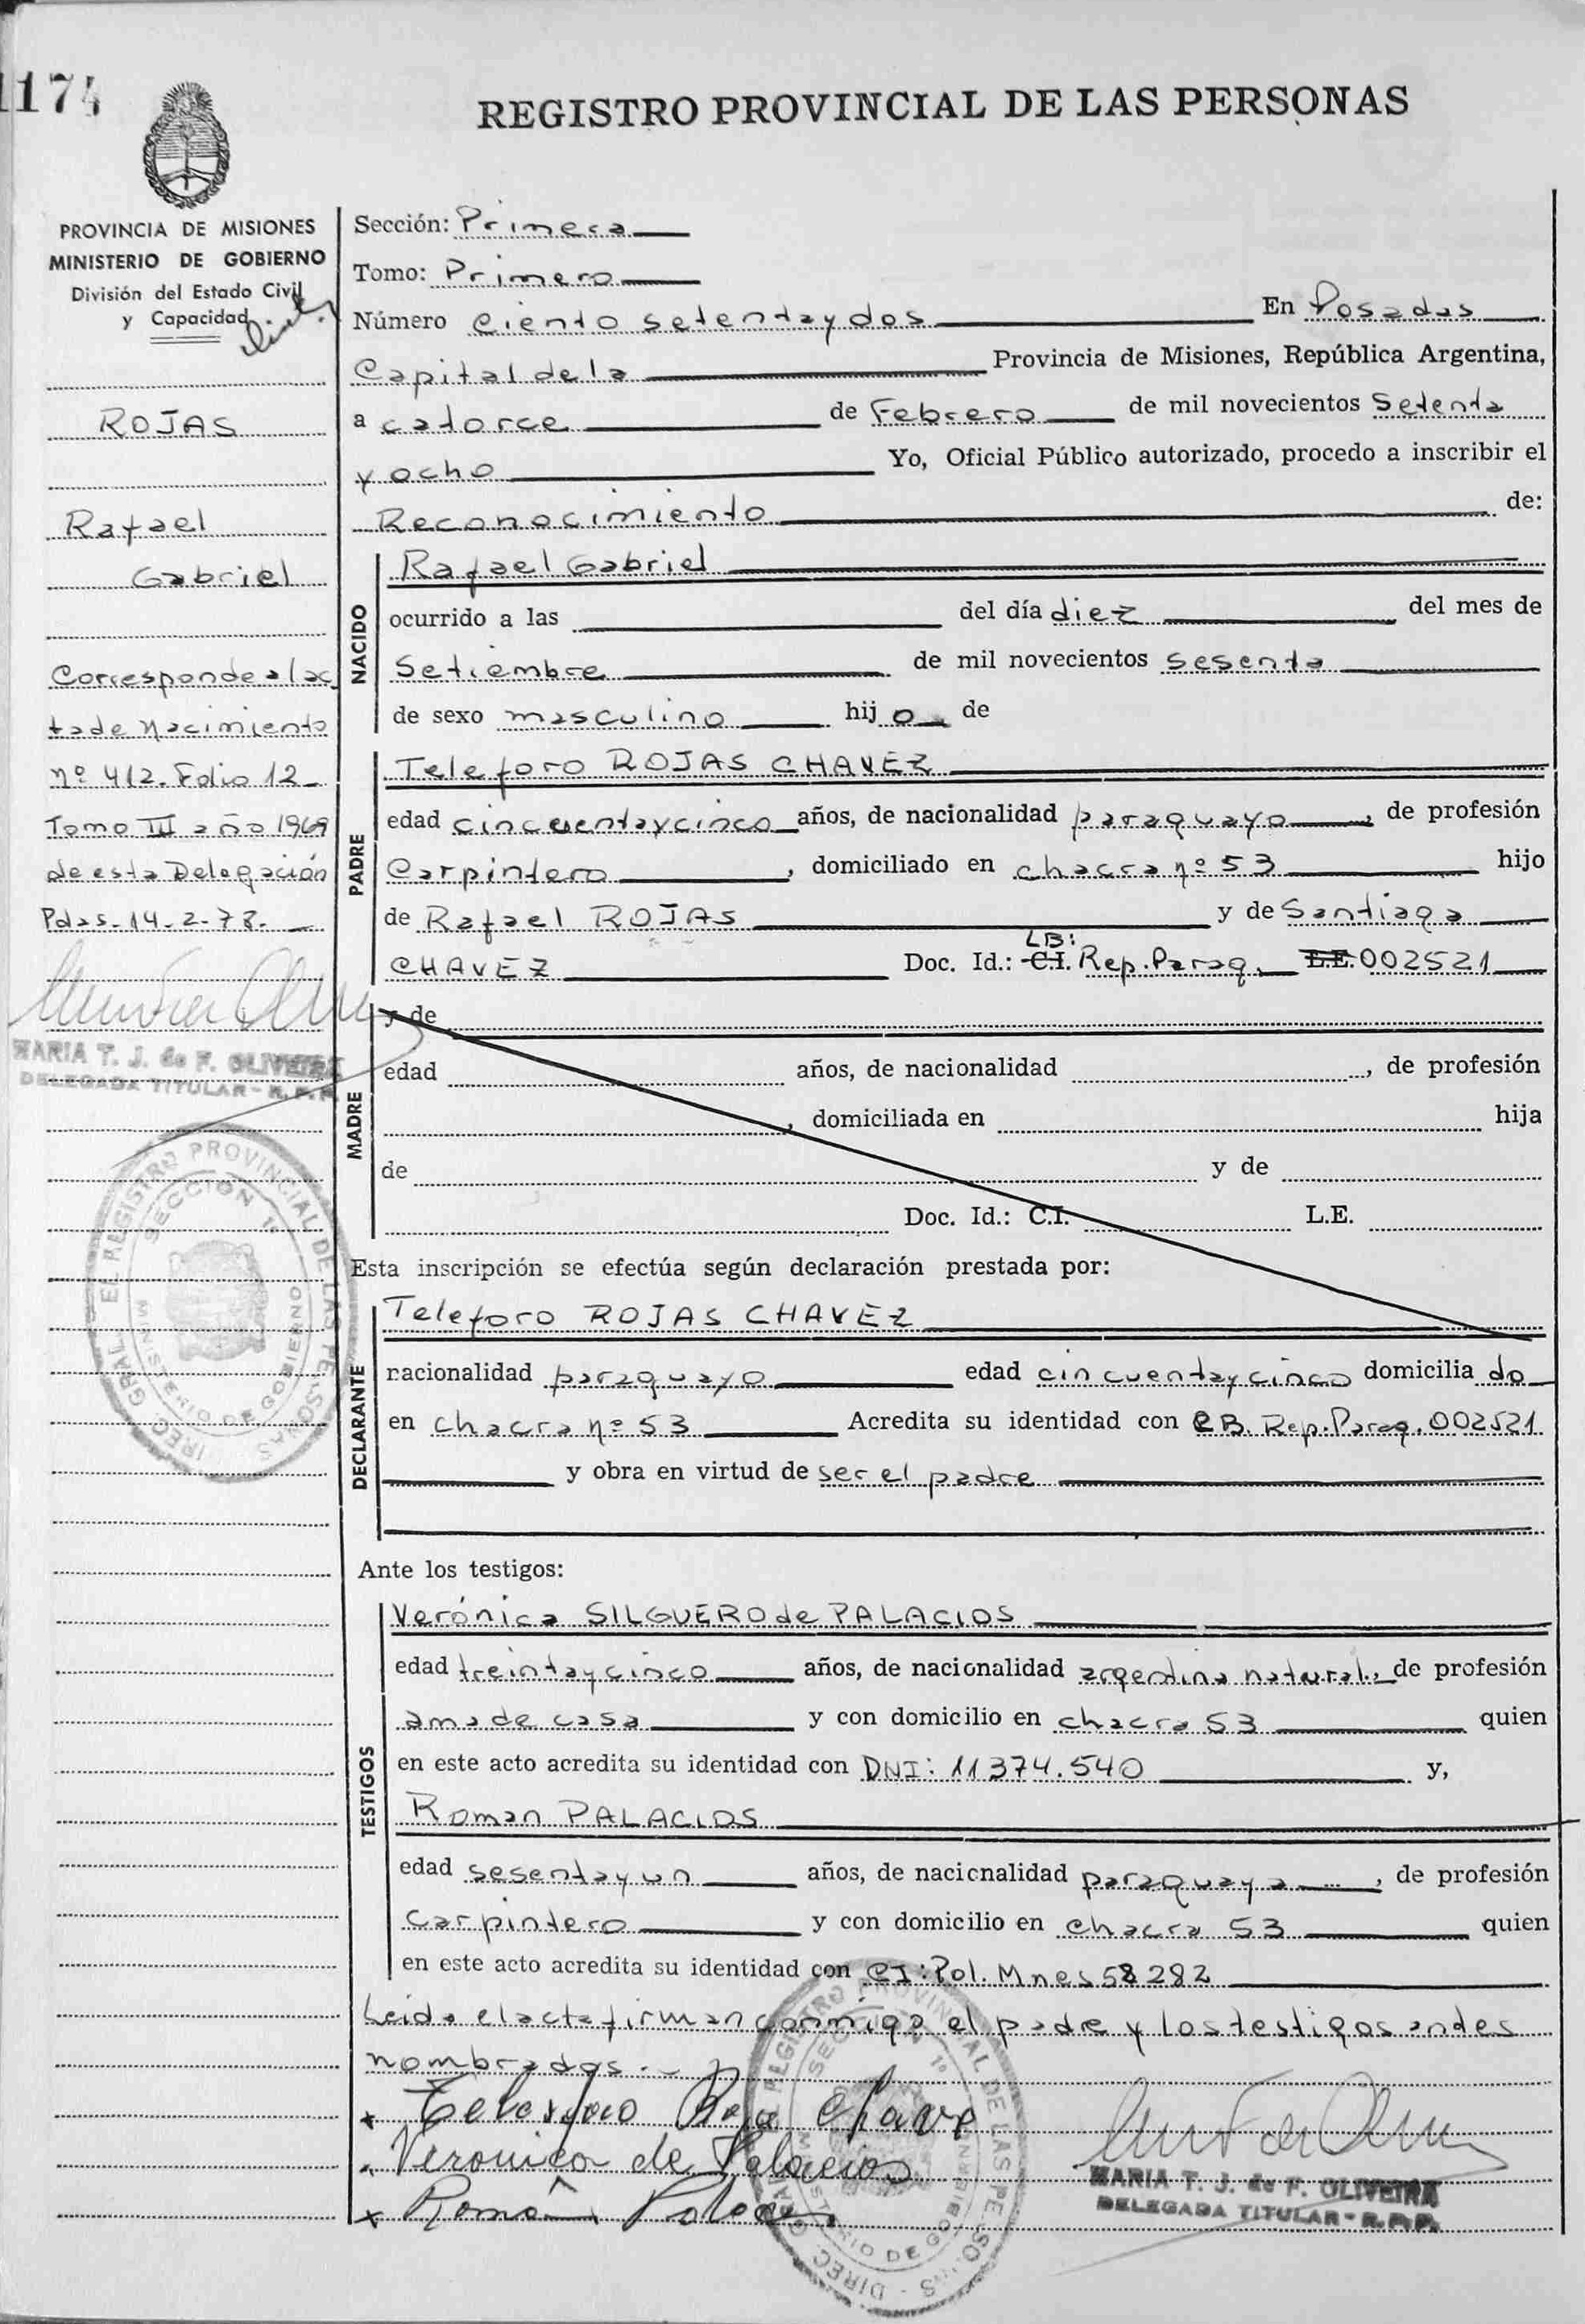 1174
REGISTRO PROVINCIAL DE LAS PERSONAS
PROVINCIA DE MISIONES
MINISTERIO DE GOBIERNO
División del Estado Civil
y Capacidad
ROJAS
Rafael
Gabriel
Corresponde al ac
ta de Nacimiento
nº 412. Folio 12
Tomo III año 1969
de esta Delegación
Pdas. 14-2-78.
MARIA T. J. de F. OLIVEIRA
DELEGADA TITULAR - R. P. P.
DIREC. GRAL. EL REGISTRO PROVINCIAL DE LAS PERSONAS
SECCION 1º
MINISTERIO DE GOBIERNO
Sección: Primera
Tomo: Primero
Número Ciento setenta y dos En Posadas
Capital de la Provincia de Misiones, República Argentina,
a catorce de Febrero de mil novecientos Setenta
y ocho Yo, Oficial Público autorizado, procedo a inscribir el
Reconocimiento de:
NACIDO
Rafael Gabriel
ocurrido a las del día diez del mes de
Setiembre de mil novecientos sesenta
de sexo masculino hij o de
PADRE
Teleforo ROJAS CHAVEZ
edad cincuenta y cinco años, de nacionalidad paraguayo, de profesión
Carpintero, domiciliado en chacra nº 53 hijo
de Rafael ROJAS y de Santiaga
CHAVEZ Doc. Id.: C.I. LB: Rep. Parag. L.E. 002521
MADRE
y de
edad años, de nacionalidad , de profesión
, domiciliada en hija
de y de
Doc. Id.: C.I. L.E.
Esta inscripción se efectúa según declaración prestada por:
DECLARANTE
Teleforo ROJAS CHAVEZ
nacionalidad paraguayo edad cincuenta y cinco domicilia do
en chacra nº 53 Acredita su identidad con LB. Rep. Parag. 002521
y obra en virtud de ser el padre
Ante los testigos:
TESTIGOS
Verónica SILGUERO de PALACIOS
edad treinta y cinco años, de nacionalidad argentina natural, de profesión
ama de casa y con domicilio en chacra 53 quien
en este acto acredita su identidad con DNI: 11374.540 y,
Roman PALACIOS
edad sesenta y un años, de nacionalidad paraguaya, de profesión
carpintero y con domicilio en chacra 53 quien
en este acto acredita su identidad con CI: Pol. Mnes 58282
Leida el acta firman conmigo el padre y los testigos antes
nombrados.
x Telesforo Roja Chave
Veronica de Palacios
x Román Palacios
MARIA T. J. de F. OLIVEIRA
DELEGADA TITULAR - R. P. P.
DIREC. GRAL. EL REGISTRO PROVINCIAL DE LAS PERSONAS
SECCION 1º
MINISTERIO DE GOBIERNO